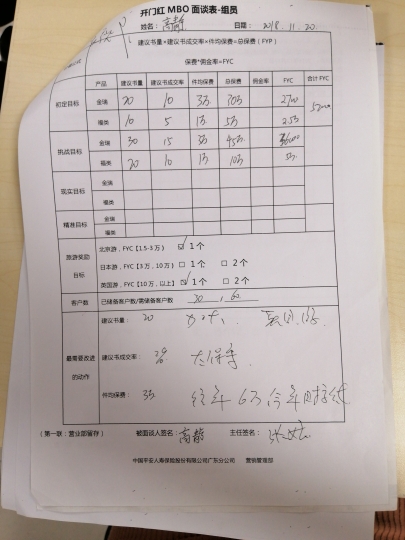 开门红 MBO 面谈表-组员
姓名：高静 日期：2018.11.20
建议书量×建议书成交率×件均保费=总保费（FYP）
保费*佣金率=FYC
产品 建议书量 建议书成交率 件均保费 总保费 佣金率 FYC 合计 FYC
初定目标 金瑞 20 10 3万 30万 2700
福类 10 5 1万 5万 2.5万
挑战目标 金瑞 30 15 3万 45万 36000
福类 20 10 1万 10万 5万
现实目标 金瑞
福类
精准目标 金瑞
福类
旅游奖励目标
北京游，FYC【1.5-3万） ☑ 1个
日本游，FYC【3万，10万） □ 1个 □ 2个
英国游，FYC【10万，以上】 ☑ 1个 □ 2个
客户数 已储备客户数/需储备客户数 30，60
最需要改进的动作
建议书量： 20
建议书成交率： 太保守
件均保费： 3万 往年6万今年目标低
（第一联：营业部留存） 被面谈人签名：高静 主任签名：
中国平安人寿保险股份有限公司广东分公司 营销管理部